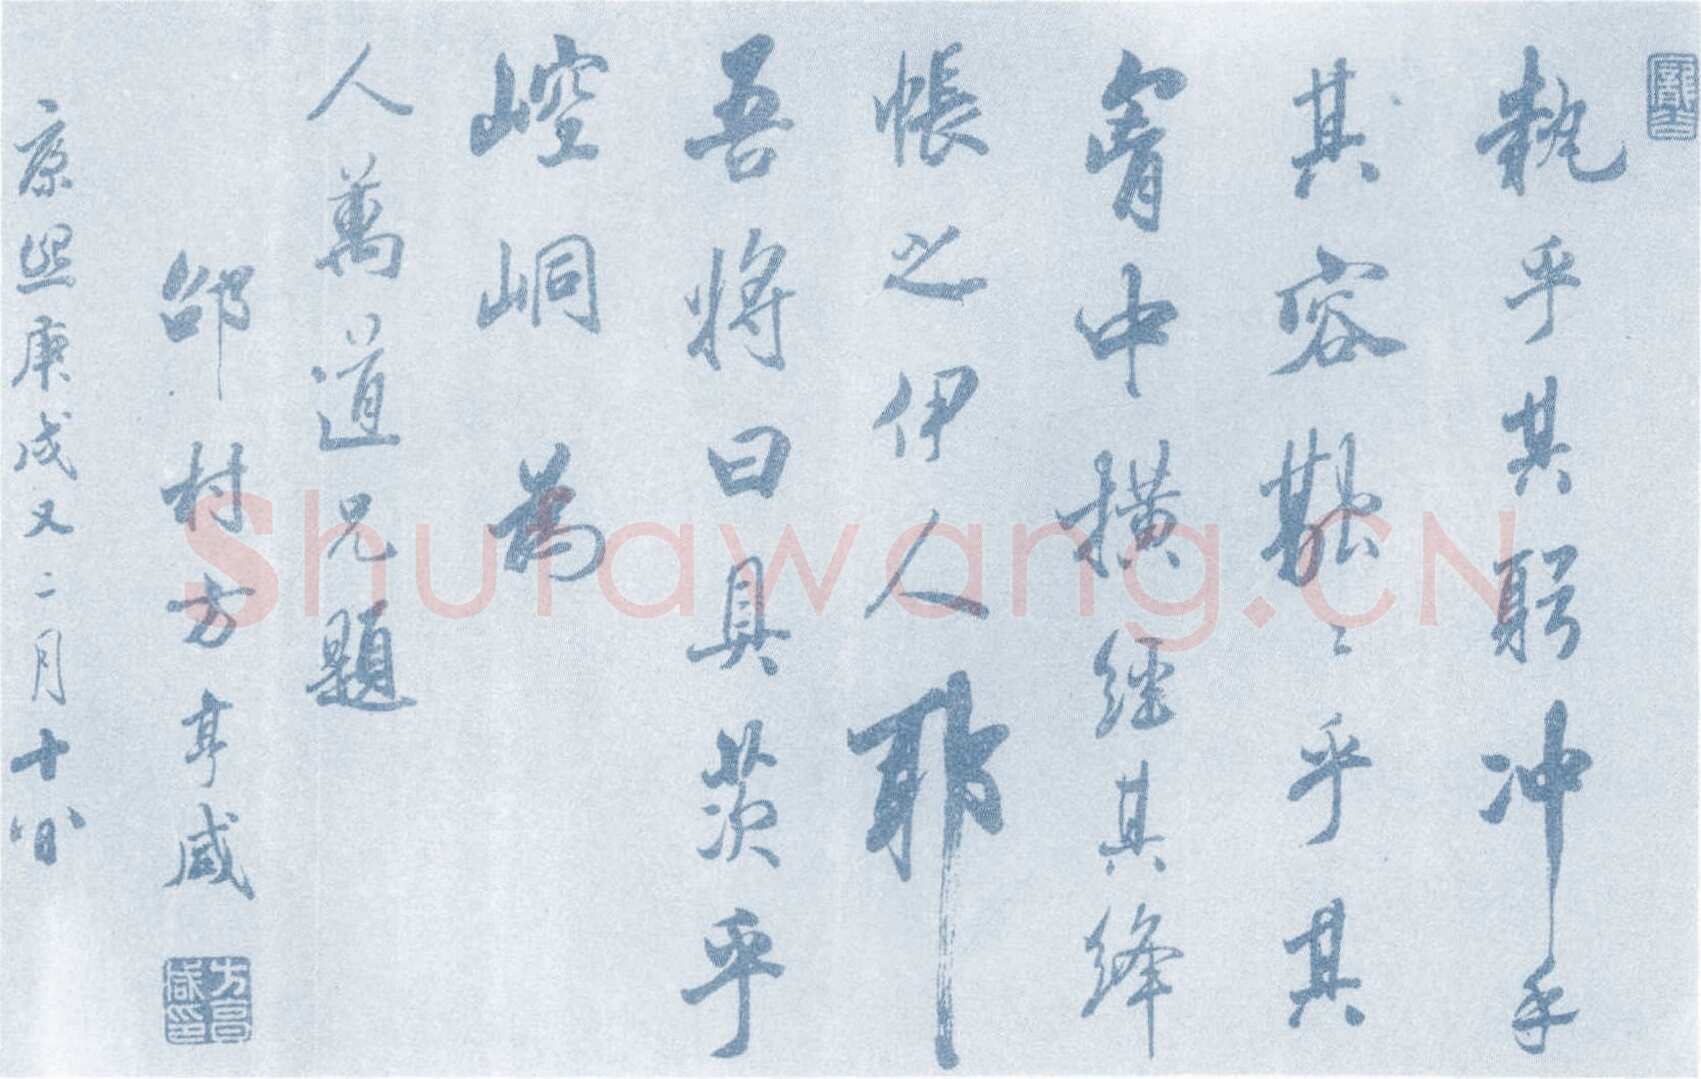 乎其躬冲乎
其容乎其
胷中橫經其絳
帳之伊人耶
吾將曰具茨乎
崆峒為
人萬道兄題
邵村方亨咸
康熙庚戌又二月十八日
方亨咸印
Shufawang.CN